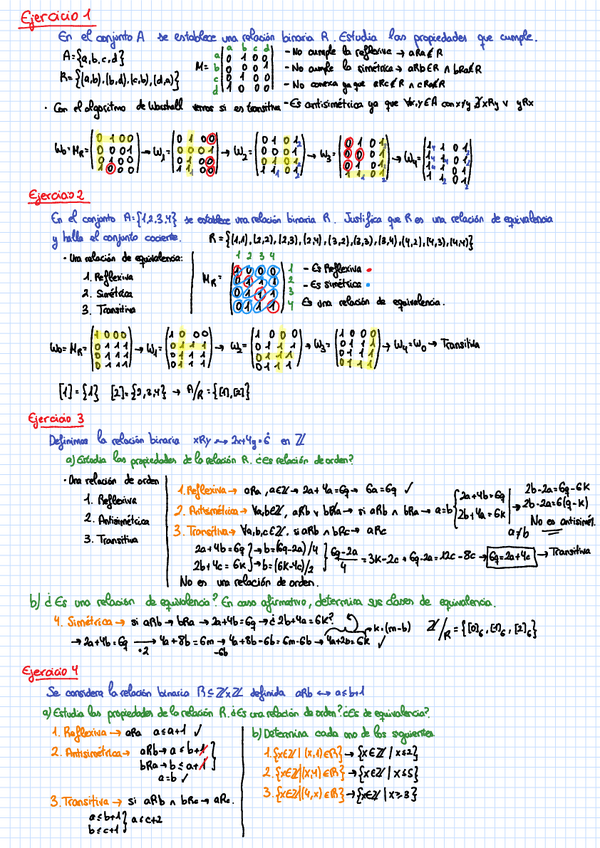 Ejercicio 1
En el conjunto A se establece una relación binaria R. Estudia las propiedades que cumple.
A={a,b,c,d}
R={(a,b),(b,d),(c,b),(d,a)}
a b c d
M= a 0 1 0 0
b 0 0 0 1
c 0 1 0 0
d 1 0 0 0
- No cumple la reflexiva → aRa ∉ R
- No cumple la simétrica → aRb ∈ R ∧ bRa ∉ R
- No conexa ya que aRc ∉ R ∧ cRa ∉ R
· Con el algoritmo de Warshall vemos si es transitiva
- Es antisimétrica ya que
Ejercicio 2
En el conjunto A={1,2,3,4} se establece una relación binaria R. Justifica que R es una relación de equivalencia
y halla el conjunto cociente. R={(1,1),(2,2),(2,3),(2,4),(3,2),(3,3),(3,4),(4,2),(4,3),(4,4)}
· Una relación de equivalencia:
1. Reflexiva
2. Simétrica
3. Transitiva
1 2 3 4
- Es Reflexiva
- Es simétrica
Es una relación de equivalencia.
W₄=W₀ → Transitiva
[1]={1} [2]={2,3,4} → A/R={[1],[2]}
Ejercicio 3
Definimos la relación binaria xRy ↔ 2x+4y=6̇ en Z
a) Estudia las propiedades de la relación R. ¿Es relación de orden?
· Una relación de orden
1. Reflexiva
2. Antisimétrica
3. Transitiva
1. Reflexiva → aRa, a∈Z → 2a+4a=6q → 6a=6q ✓
2. Antisimétrica → ∀a,b∈Z, aRb ∧ bRa → si aRb ∧ bRa → a=b
2a+4b=6q
2b+4a=6k
2b-2a=6q-6k
2b-2a=6(q-k)
No es antisimét.
a≠b
3. Transitiva → ∀a,b,c∈Z, si aRb ∧ bRc → aRc
2a+4b=6q → b=(6q-2a)/4
2b+4c=6k → b=(6k-4c)/2
6q-2a/4 = 3k-2c → 6q-2a=12k-8c → 6q=2a+4c → Transitiva
No es una relación de orden.
b) ¿Es una relación de equivalencia? En caso afirmativo, determina sus clases de equivalencia.
4. Simétrica → si aRb → bRa → 2a+4b=6q → ¿2b+4a=6k?
→ 2a+4b=6q → 4a+8b=6m → 4a+8b-6b=6m-6b → 4a+2b=6k ✓
·2 -6b
k=(m-b)
Z/R={[0]₆,[1]₆,[2]₆}
Ejercicio 4
Se considera la relación binaria R⊆ZxZ definida aRb ↔ a≤b+1
a) Estudia las propiedades de la relación R. ¿Es una relación de orden? ¿Es de equivalencia?
1. Reflexiva → aRa a≤a+1 ✓
2. Antisimétrica → aRb → a≤b+1
bRa → b≤a+1
a=b ✓
3. Transitiva → si aRb ∧ bRc → aRc.
a≤b+1
b≤c+1
a≤c+2
b) Determina cada uno de los siguientes
1. {x∈Z | (x,1)∈R} → {x∈Z | x≤2}
2. {x∈Z | (x,4)∈R} → {x∈Z | x≤5}
3. {x∈Z | (4,x)∈R} → {x∈Z | x≥3}